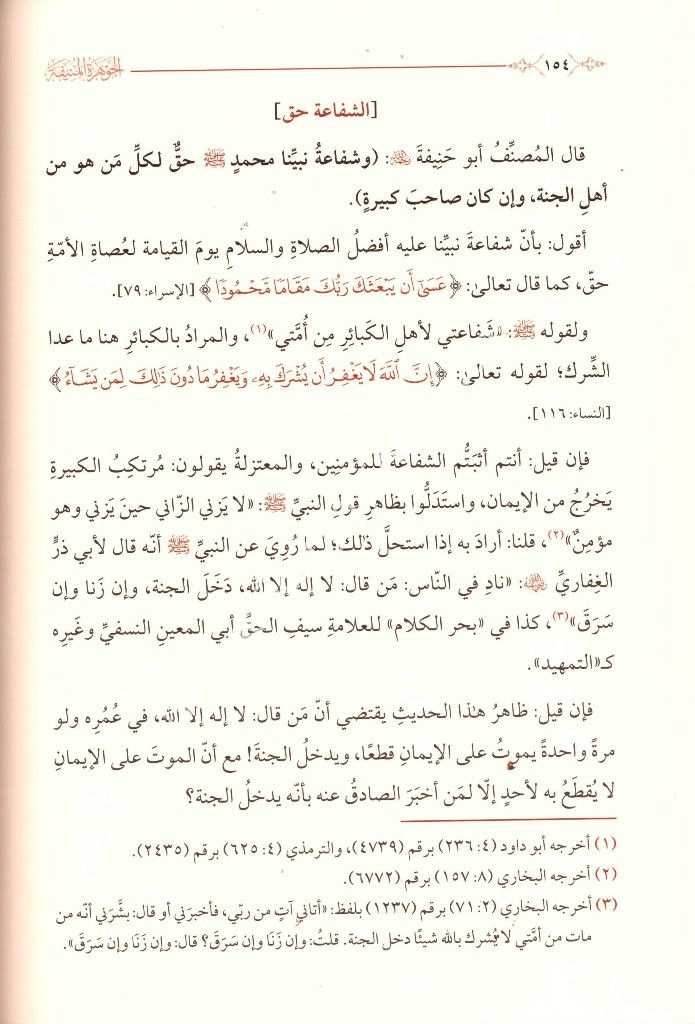 ١٥٤
الجوهرة المنيفة
[الشفاعة حق]
قال المُصنِّفُ أبو حَنِيفةَ رضي الله عنه: (وشفاعةُ نبيِّنا محمدٍ ﷺ حقٌّ لكلِّ مَن هو من
أهلِ الجنة، وإن كان صاحبَ كبيرةٍ).
أقول: بأنّ شفاعةَ نبيِّنا عليه أفضلُ الصلاةِ والسلامِ يومَ القيامة لعُصاةِ الأمّةِ
حقّ، كما قال تعالىٰ: ﴿عَسَىٰٓ أَن يَبْعَثَكَ رَبُّكَ مَقَامًا مَّحْمُودًا﴾ [الإسراء: ٧٩].
ولقوله ﷺ: «شَفاعتي لأهلِ الكَبائِرِ مِن أُمَّتي»(١)، والمرادُ بالكبائرِ هنا ما عدا
الشِّرك؛ لقوله تعالىٰ: ﴿إِنَّ ٱللَّهَ لَا يَغْفِرُ أَن يُشْرَكَ بِهِۦ وَيَغْفِرُ مَا دُونَ ذَٰلِكَ لِمَن يَشَآءُ﴾
[النساء: ١١٦].
فإن قيل: أنتم أثبَتُّم الشفاعةَ للمؤمنِين، والمعتزلةُ يقولون: مُرتكِبُ الكبيرةِ
يَخرُجُ من الإيمان، واستَدَلُّوا بظاهرِ قولِ النبيِّ ﷺ: «لا يَزني الزّاني حينَ يَزني وهو
مؤمِنٌ»(٢)، قلنا: أرادَ به إذا استحلَّ ذلك؛ لما رُوِيَ عن النبيِّ ﷺ أنّه قال لأبي ذرٍّ
الغِفاريِّ رضي الله عنه: «نادِ في النّاس: مَن قال: لا إله إلا الله، دَخَلَ الجنة، وإن زَنا وإن
سَرَقَ»(٣)، كذا في «بحر الكلام» للعلامةِ سيفِ الحقِّ أبي المعين النسفيِّ وغَيرِه
كـ«التمهيد».
فإن قيل: ظاهرُ هٰذا الحديثِ يقتضي أنّ مَن قال: لا إله إلا الله، في عُمُرِه ولو
مرةً واحدةً يموتُ على الإيمانِ قطعًا، ويدخلُ الجنةَ! مع أنّ الموتَ على الإيمانِ
لا يُقطَعُ به لأحدٍ إلّا لمَن أخبَرَ الصادقُ عنه بأنّه يدخلُ الجنة؟
(١) أخرجه أبو داود (٤: ٢٣٦) برقم (٤٧٣٩)، والترمذي (٤: ٦٢٥) برقم (٢٤٣٥).
(٢) أخرجه البخاري (٨: ١٥٧) برقم (٦٧٧٢).
(٣) أخرجه البخاري (٢: ٧١) برقم (١٢٣٧) بلفظ: «أتاني آتٍ من ربّي، فأخبرَني أو قال: بشَّرَني أنّه من
مات من أمَّتي لا يُشرك بالله شيئًا دخل الجنة. قلتُ: وإن زَنَا وإن سَرَقَ؟ قال: وإن زَنَا وإن سَرَقَ».